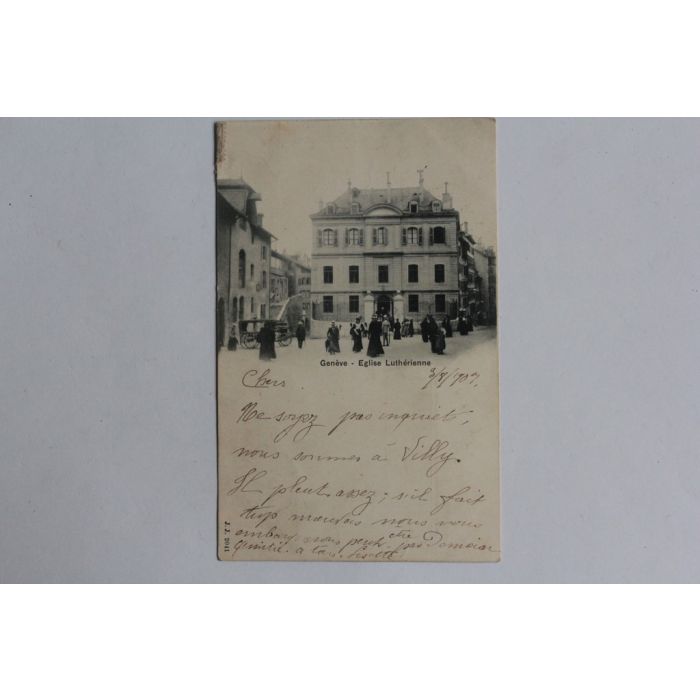 Genève - Eglise Luthérienne
Chers 3/8/1907
Ne soyez pas inquiet,
nous sommes à Villy.
Il pleut assez; s'il fait
trop mauvais nous nous
peut être pas
à
J. J. 2011